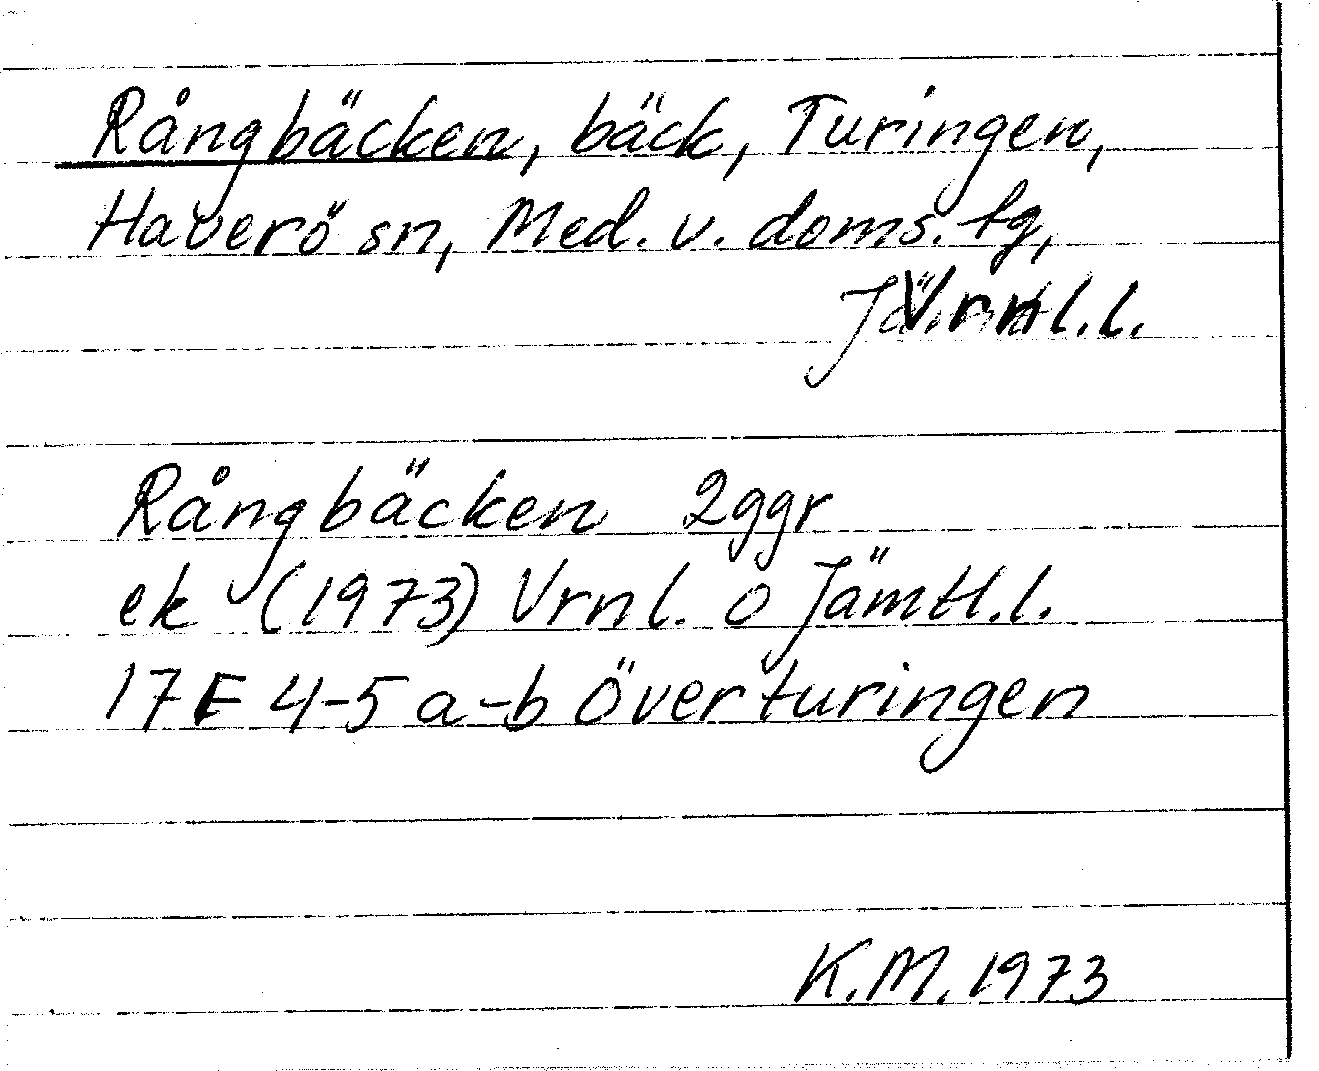 Rångbäcken, bäck, Turingen,
Haverö sn, Med. v. doms. tg,
V.rnl.l.
Rångbäcken 2ggr
ek (1973) Vrnl. o Jämtl.l.
17E 4-5 a-b Överturingen
K.M. 1973